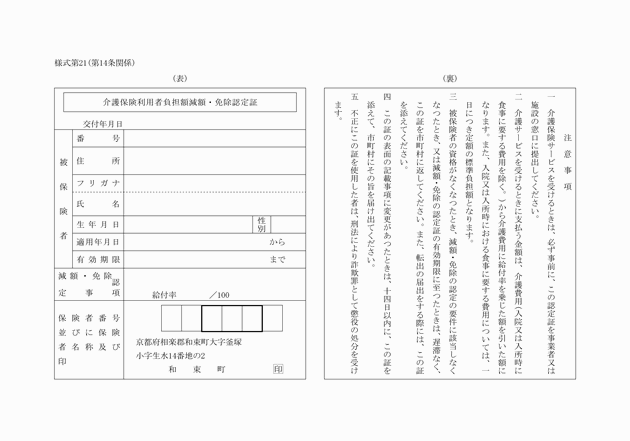 様式第21(第14条関係)
(表)
介護保険利用者負担額減額・免除認定証
交付年月日
被保険者
番号
住所
フリガナ
氏名
生年月日
性別
適用年月日
から
有効期限
まで
減額・免除認
定事項
給付率 /100
保険者番号
並びに保険
者名称及び
印
京都府相楽郡和束町大字釜塚
小字生水14番地の2
和束町 印
(裏)
注意事項
一 介護保険サービスを受けるときは、必ず事前に、この認定証を事業者又は
施設の窓口に提出してください。
二 介護サービスを受けるときに支払う金額は、介護費用(入院又は入所時に
食事に要する費用を除く。)から介護費用に給付率を乗じた額を引いた額に
なります。また、入院又は入所時における食事に要する費用については、一
日につき定額の標準負担額となります。
三 被保険者の資格がなくなつたとき、減額・免除の認定の要件に該当しなく
なつたとき、又は減額・免除の認定証の有効期限に至つたときは、遅滞なく、
この証を市町村に返してください。また、転出の届出をする際には、この証
を添えてください。
四 この証の表面の記載事項に変更があつたときは、十四日以内に、この証を
添えて、市町村にその旨を届け出てください。
五 不正にこの証を使用した者は、刑法により詐欺罪として懲役の処分を受け
ます。